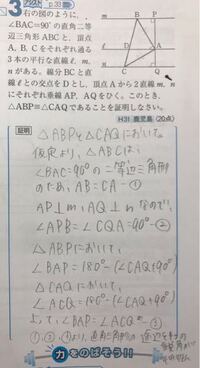 3 右の図のように、
∠BAC=90°の直角二等
辺三角形ABCと、頂点
A, B, Cをそれぞれ通る
3本の平行な直線ℓ, m,
nがある。線分BCと直
線ℓとの交点をDとし、頂点Aから2直線m,
nにそれぞれ垂線AP, AQをひく。このとき、
△ABP≡△CAQであることを証明しなさい。
H31 鹿児島 (20点)
m B P
ℓ D A
n C Q
証明
△ABPと△CAQにおいて、
仮定より、△ABCは、
∠BAC=90°の直角二等辺三角形
のため、AB=CA ―①
AP⊥m, AQ⊥nなので、
∠APB=∠CQA=90°―②
△ABPにおいて、
∠BAP=180°-(∠CAQ+90°)
△CAQにおいて、
∠ACQ=180°-(∠CAQ+90°)
よって、∠BAP=∠ACQ ―③
①,②,③より、直角三角形の
力をのばそう!!